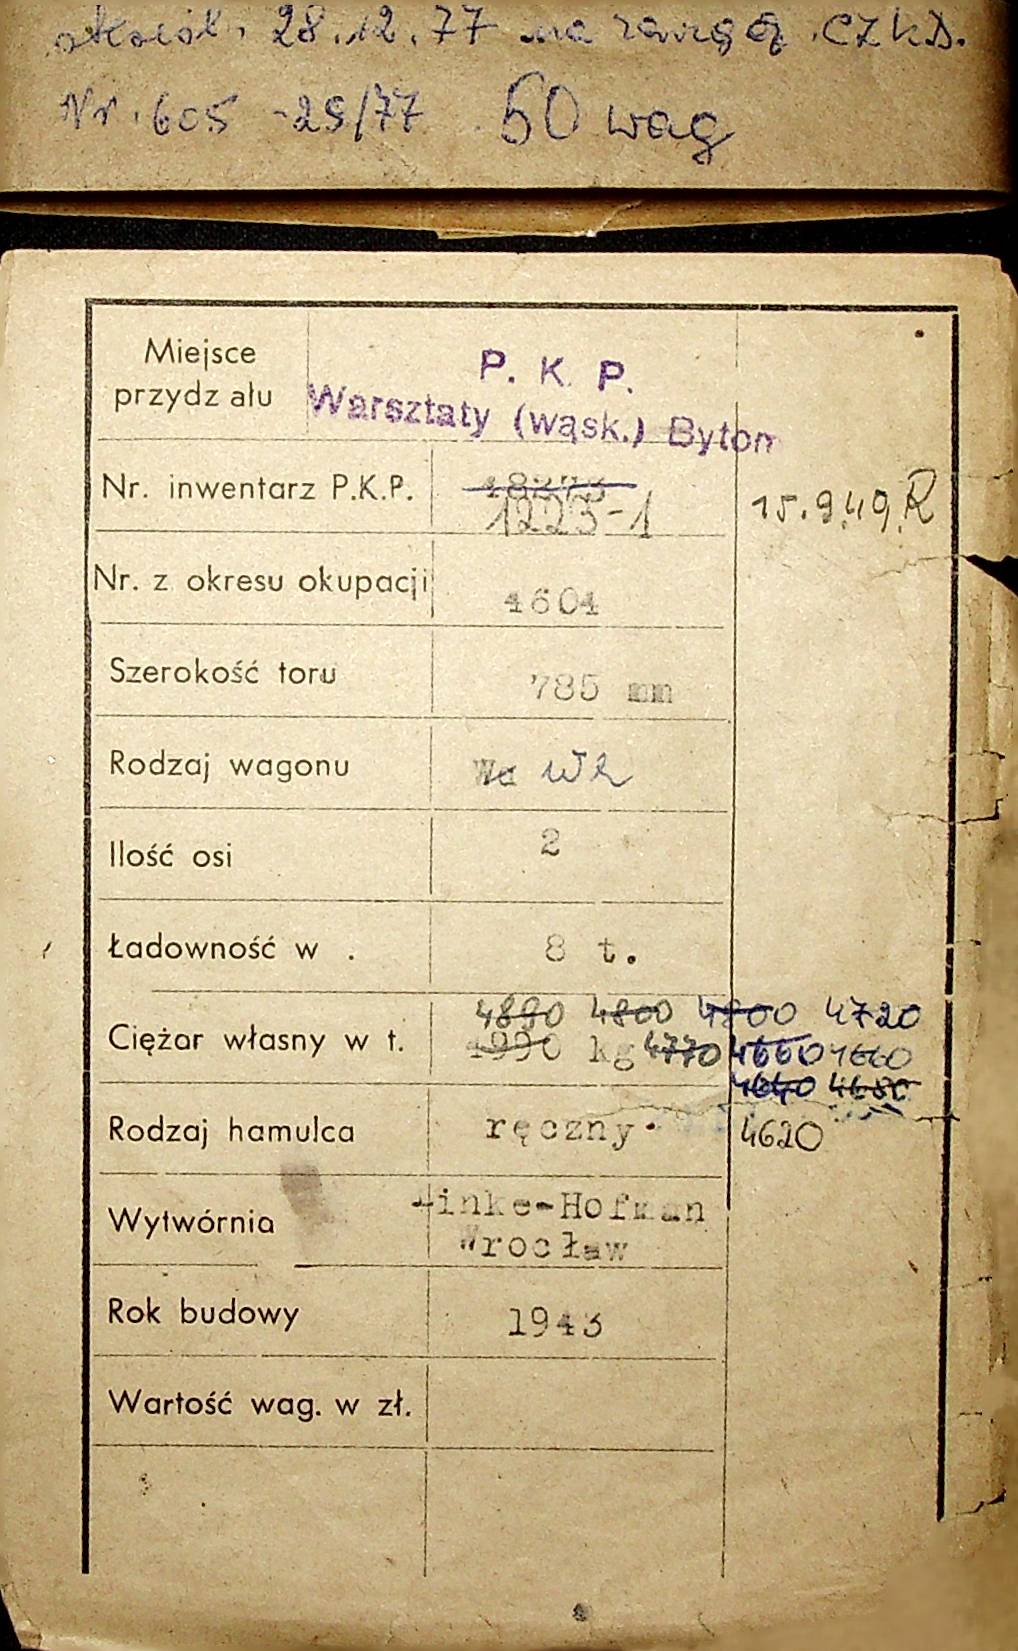 28.12.77 na
Nr. 605 -29/77 50 wag
Miejsce
przydz ału
P. K. P.
Warsztaty (wąsk.) Bytom
Nr. inwentarz P.K.P.
18273
1223-1 15.9.49.R
Nr. z okresu okupacji 4604
Szerokość toru 785 mm
Rodzaj wagonu Wc
Ilość osi 2
Ładowność w . 8 t.
4890 4800 4800 4720
Ciężar własny w t. 4990 kg 4770 4660 4660
4640 4680
Rodzaj hamulca ręczny 4620
Wytwórnia Linke-Hofman
Wrocław
Rok budowy 1943
Wartość wag. w zł.